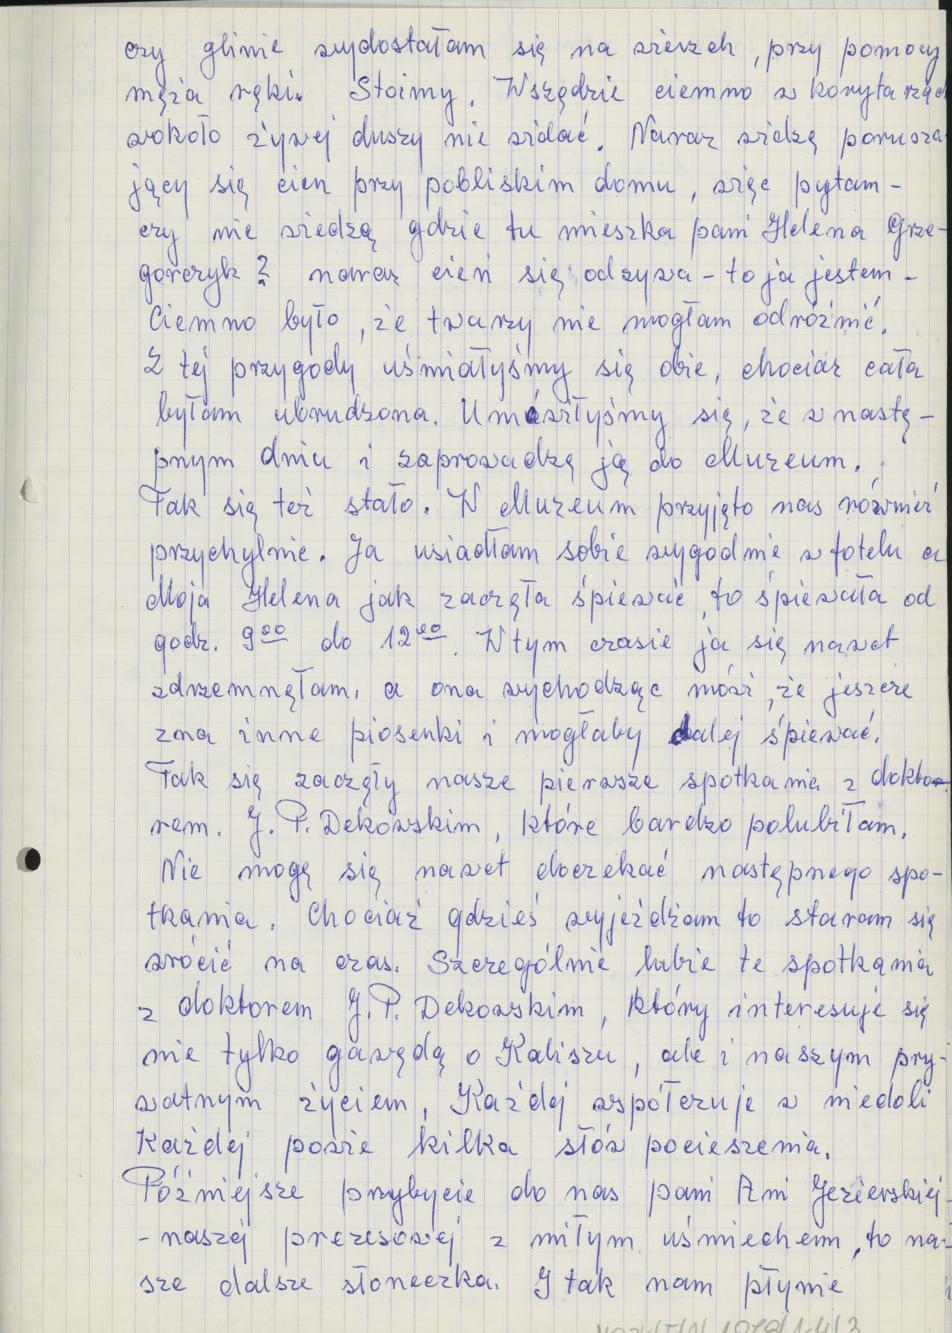 czy glinie wydostałam się na wierzch, przy pomocy
męża ręki. Stoimy. Wszędzie ciemno w korytarzach
wokoło żywej duszy nie widać. Naraz widzę porusza
jący się cien przy pobliskim domu, więc pytam -
czy nie wiedzą gdzie tu mieszka pani Helena Grze-
gorczyk? naraz cień się odzywa - to ja jestem -
Ciemno było, że twarzy nie mogłam odróżnić.
Z tej przygody uśmiałyśmy się obie, chociaż cała
byłam ubrudzona. Umówiłyśmy się, że w nastę-
pnym dniu i zaprowadzę ją do Muzeum.
Tak się też stało. W Muzeum przyjęto nas również
przychylnie. Ja usiadłam sobie wygodnie w fotelu a
Moja Helena jak zaczęła śpiewać, to śpiewała od
godz. 9⁰⁰ do 12⁰⁰. W tym czasie ja się nawet
zdrzemnęłam, a ona wychodząc mówi, że jeszcze
zna inne piosenki i mogłaby dalej śpiewać.
Tak się zaczęły nasze pierwsze spotkania z dokto-
rem. J. P. Dekowskim, które bardzo polubiłam.
Nie mogę się nawet doczekać następnego spo-
tkania. Chociaż gdzieś wyjeżdżam to staram się
wrócić na czas. Szczególnie lubie te spotkania
z doktorem J. P. Dekowskim, który interesuje się
nie tylko gawędą o Kaliszu, ale i naszym pry-
watnym życiem, Każdej współczuje w niedoli
Każdej powie kilka słów pocieszenia.
Późniejsze przybycie do nas pani Ani Jezierskiej -
- naszej prezesowej z miłym uśmiechem, to na-
sze dalsze słoneczka. I tak nam płynie